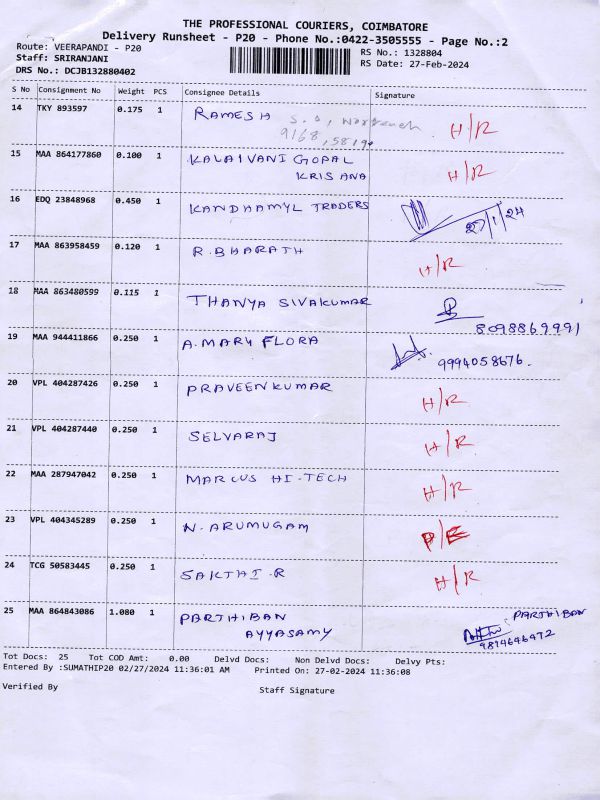 THE PROFESSIONAL COURIERS, COIMBATORE
Delivery Runsheet - P20 - Phone No.:0422-3505555 - Page No.:2
Route: VEERAPANDI - P20 RS No.: 1328804
Staff: SRIRANJANI RS Date: 27-Feb-2024
DRS No.: DCJB132880402
S No Consignment No Weight PCS Consignee Details Signature
14 TKY 893597 0.175 1 RAMESH H/R
15 MAA 864177860 0.100 1 KALAIVANI GOPAL
KRISANA H/R
16 EDQ 23848968 0.450 1 KANDHAMYL TRADERS 27/1/24
17 MAA 863958459 0.120 1 R.BHARATH H/R
18 MAA 863480599 0.115 1 THANYA SIVAKUMAR
8098869991
19 MAA 944411866 0.250 1 A.MARY FLORA 9994058676.
20 VPL 404287426 0.250 1 PRAVEENKUMAR H/R
21 VPL 404287440 0.250 1 SELVARAJ H/R
22 MAA 287947042 0.250 1 MARCUS HI-TECH H/R
23 VPL 404345289 0.250 1 N.ARUMUGAM
24 TCG 50583445 0.250 1 SAKTHI.R H/R
25 MAA 864843086 1.080 1 PARTHIBAN PARTHIBAN
AYYASAMY 9874646472
Tot Docs: 25 Tot COD Amt: 0.00 Delvd Docs: Non Delvd Docs: Delvy Pts:
Entered By :SUMATHIP20 02/27/2024 11:36:01 AM Printed On: 27-02-2024 11:36:08
Verified By Staff Signature